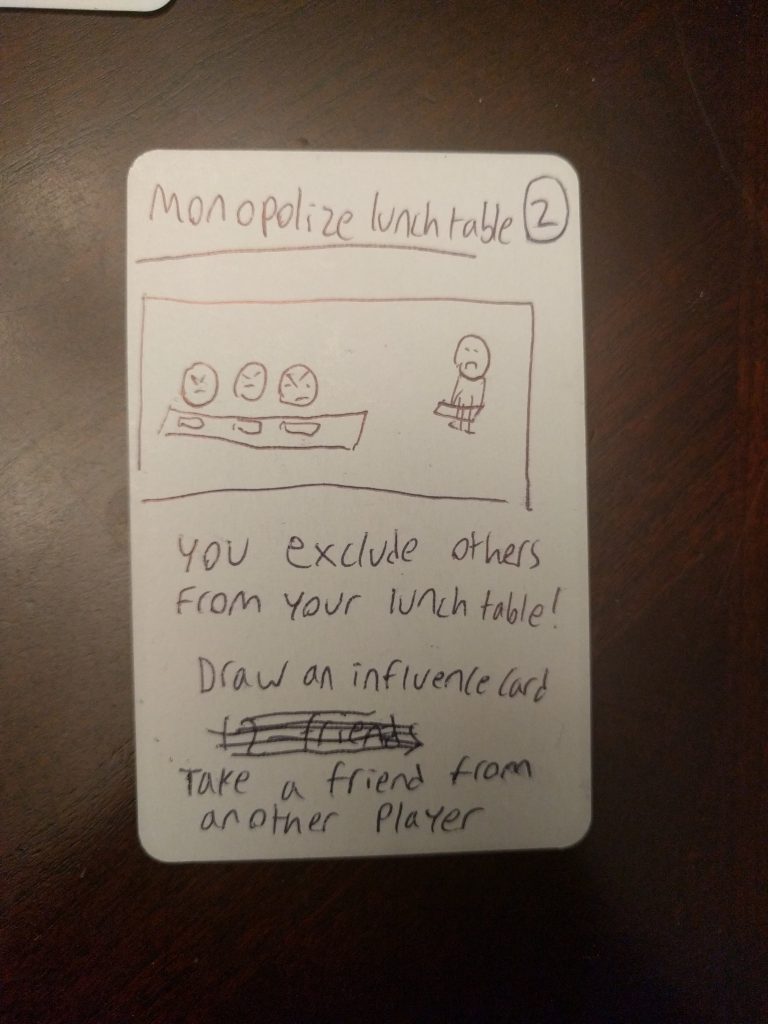 Monopolize lunch table 2
You exclude others
From your lunch table!
Draw an influence card
Take a friend from
another Player